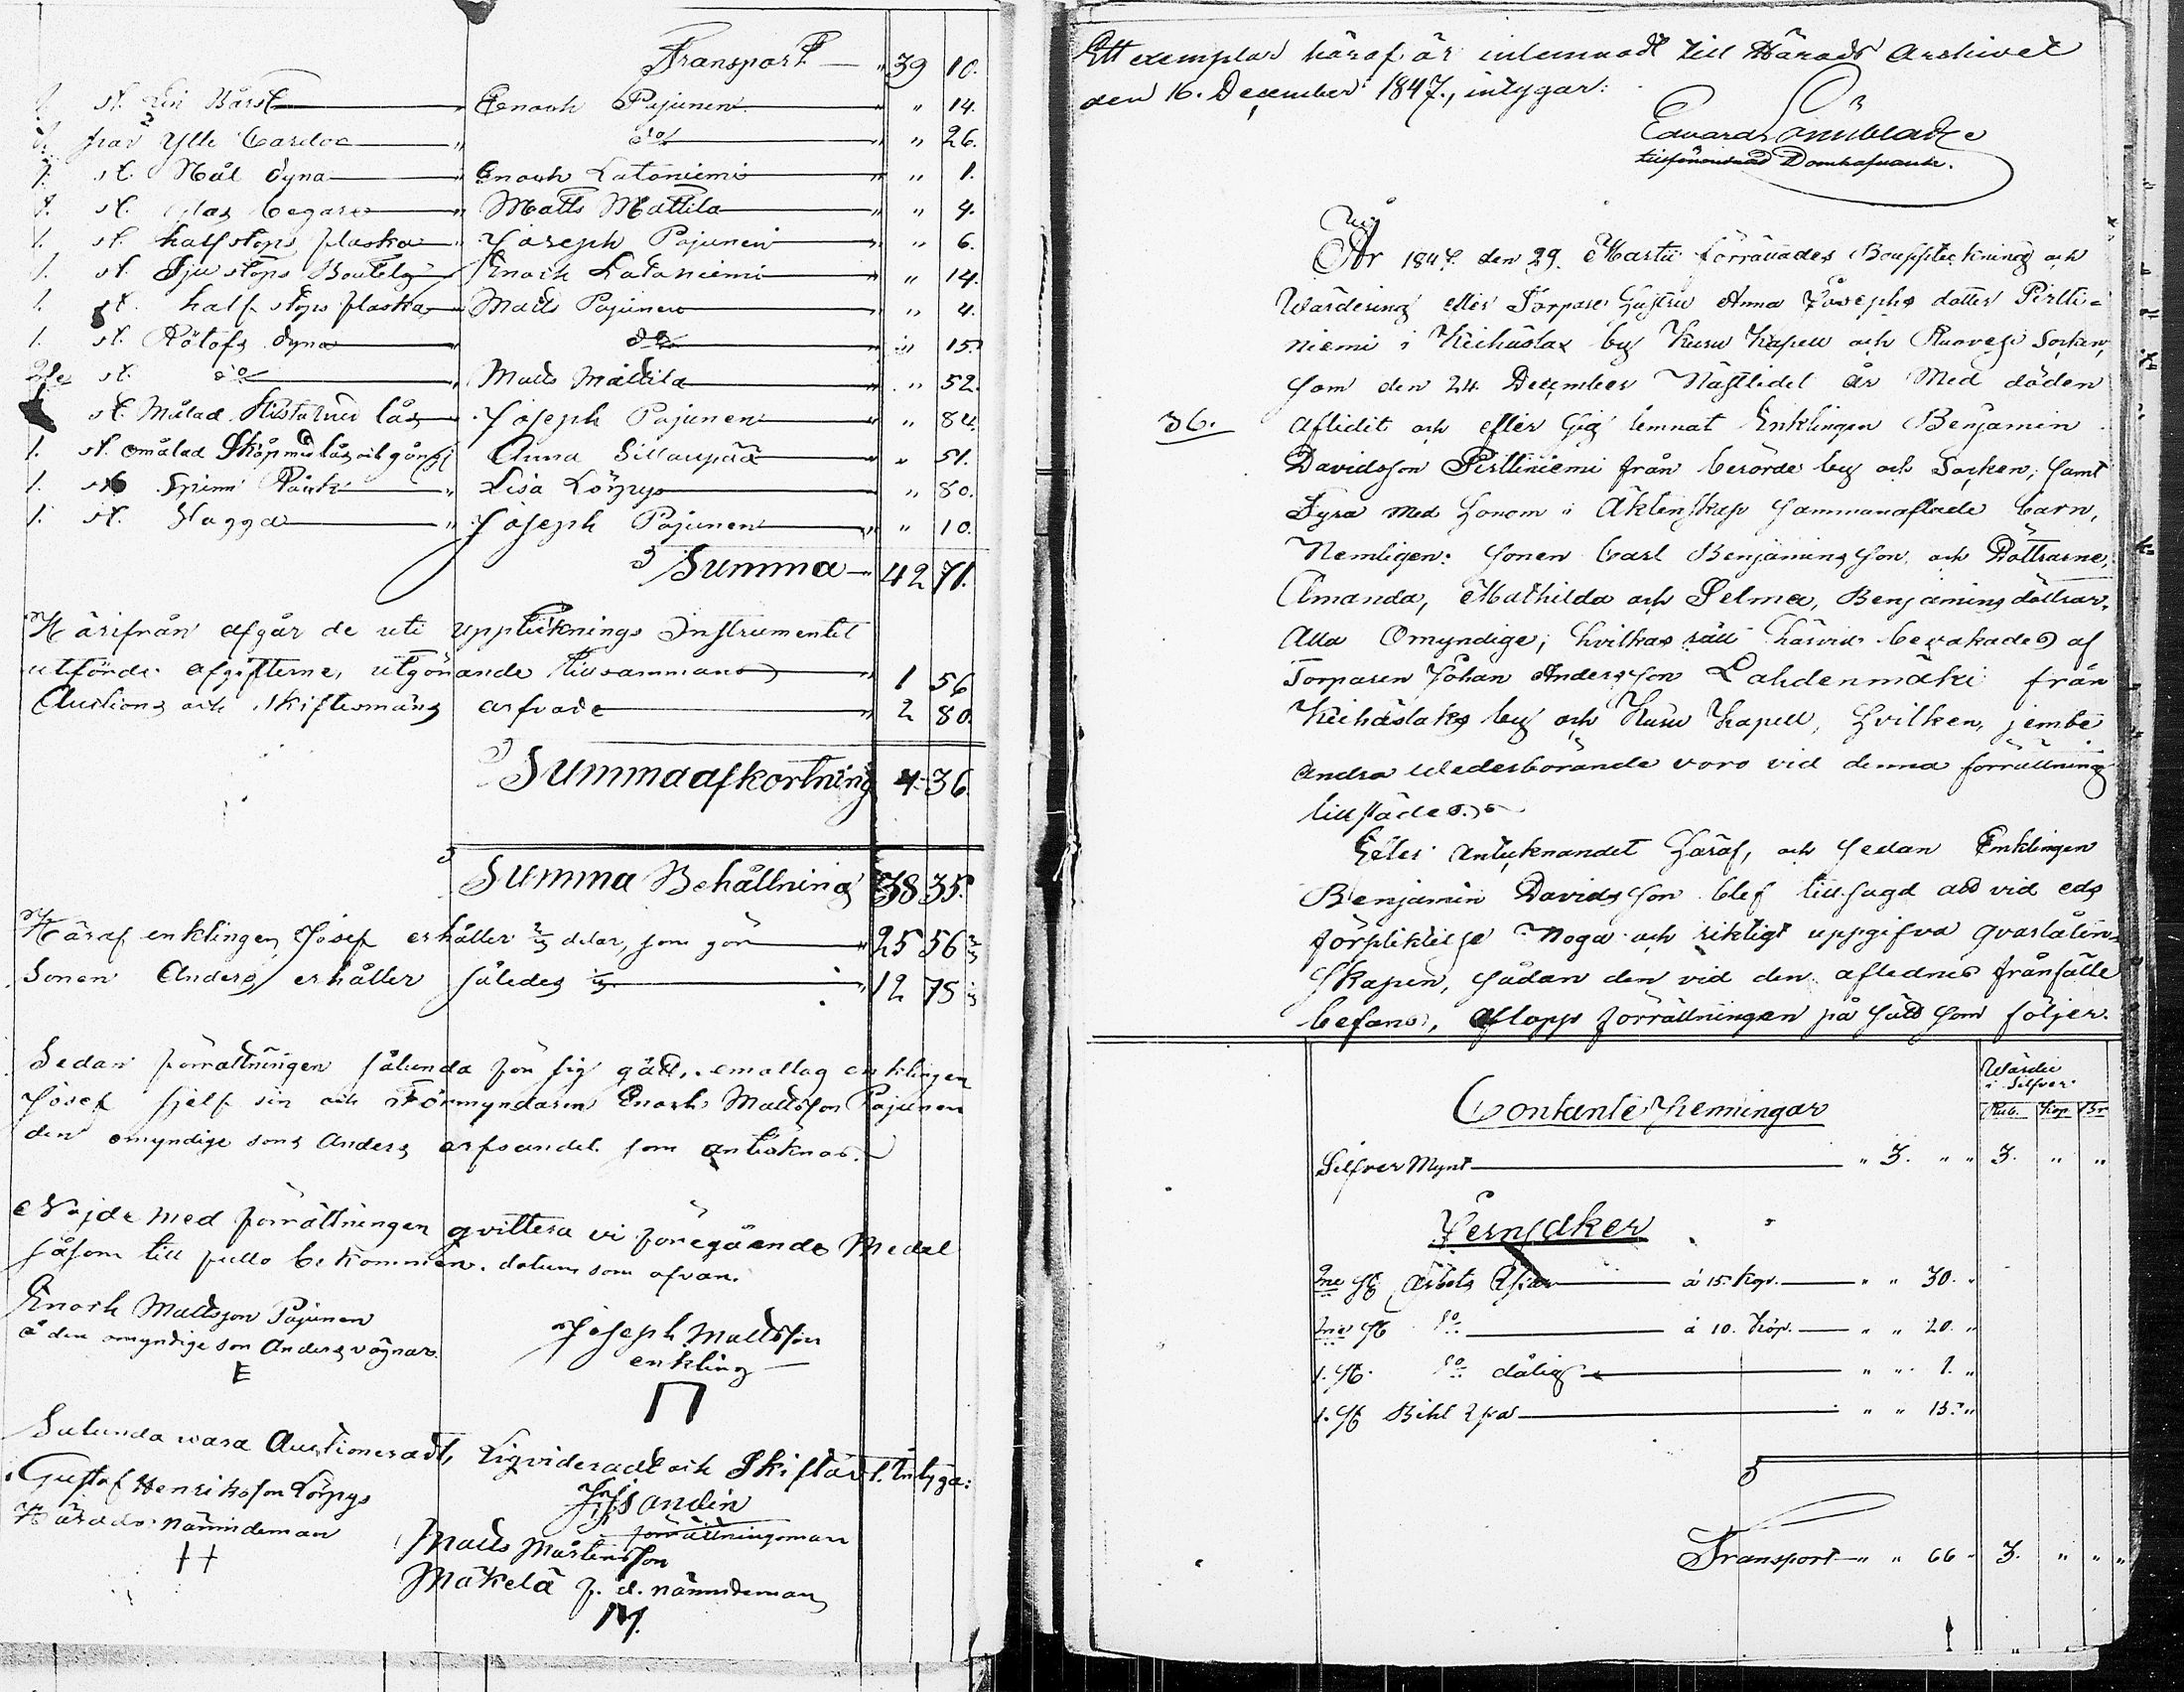 Transport — " 39 10.
1. st. Lin Bårst — " Enoch Pajunen — " " 14.
1. par Ylle Cardor — " do — " " 26.
1. st. Nål dyna — " Enoch Lataniemi — " " 1.
1. st. glas begare — " Matts Mattila — " " 4.
1. st. half stops flaska — " Joseph Pajunen — " " 6.
1. st. Sju stops Boutelg — Enoch Lataniemi — " " 14.
1. st. half stops flaska — Matts Pajunen — " " 4.
1. st. Rötofs dyna — " do — " " 15.
2ne st. do — " Matts Mattila — " " 52.
st. Målad Kista med lås — " Joseph Pajunen — " " 84.
1. st. omålad Skåp med lås och gångj. Anna Sillanpää — " 51.
1. st. Spinn Råck — " Lisa Lörpys — " 80.
1. st. Slagga — " Joseph Pajunen — " " 10.
Summa — " 42 71.
Härifrån afgår de uti Upptecknings Instrumentet
utförde afgifterne, utgörande tillsammans — " 1 56
Auctions och skiftesmäns arfvode — " 2 80.
Summa afkortning 4 36.
Summa Behållning 38 35.
Häraf enklingen Josef erhåller 2/3 delar, som gör — " 25 56 2/3
Sonen Anders erhåller således 1/3 — " 12 78 1/3
Sedan förrättningen sålunda för sig gått, emottog enklingen
Josef sjelf sin och Förmyndaren Enoch Mattsson Pajunen
den omyndige sons Anders arfsandel som antecknas.
Nöjde med förrättningen qvittera vi föregående Medel
såsom till fullo bekommen. datum som ofvan.
Enoch Mattsson Pajunen
å den omyndige son Anders vägnar.
E
Joseph Mattsson
enkling —
Π
Sålunda vara Auctioneradt, Liqvideradt och Skiftadt, intyga:
Gustaf Henriksson Lörpys
Härads nämndeman
H
Sandin
förrättningsman
Matts Mårtensson
Mäkelä f. d. nämndeman
M.
Ett exemplar häraf är inlemnadt till Härads Archivet
den 16. December 1847., intygar:
Edward Lönnblad
tillförordnad Domhafvande.
År 1847. den 29. Martii förrättades Bouppteckning och
Wärdering efter Torpare Hustru Anna Josephs dotter Pirtti-
niemi i Keihäslax by Kuru Kapell och Ruovesi Socken,
som den 24 December Nästlidet år Med döden
36. aflidit och efter sig lemnat Enklingen Benjamin
Davidsson Pirttiniemi från berörde by och Socken, samt
Fyra med honom i Äktenskap sammanaflade barn,
Nemligen: Sonen Carl Benjamins son, och Döttrarne,
Amanda, Mathilda och Selma, Benjamins döttrar,
Alla Omyndige, hvilkas rätt härvid bevakades af
Torparen Johan Andersson Lahdenmäki från
Keihäslaks by och Kuru Kapell, hvilken, jemte
andra wederbörande voro vid denna förrättning
tillstädes.
Efter antecknandet häraf, och sedan Enklingen
Benjamin Davidsson blef tillsagd att vid eds
förpliktelse noga och riktigt uppgifva qvarlåten-
skapen, sådan den vid den aflednes frånfälle
befans, aflopp förrättningen på sätt som följer.
Wärde
i Silfver.
Rub. Kop. Br.
Contante Penningar
Silfver Mynt — " 3. " " 3. " "
Jernsaker
2ne st. Arbets Yxor — à 15. kop. — " " 30. "
2ne st. do — à 10. kop. — " " 20. "
1. st. do dålig — " " 1. "
1. st. Bihl Yxa — " " 15. "
Transport — " " 66 " 3. " " "